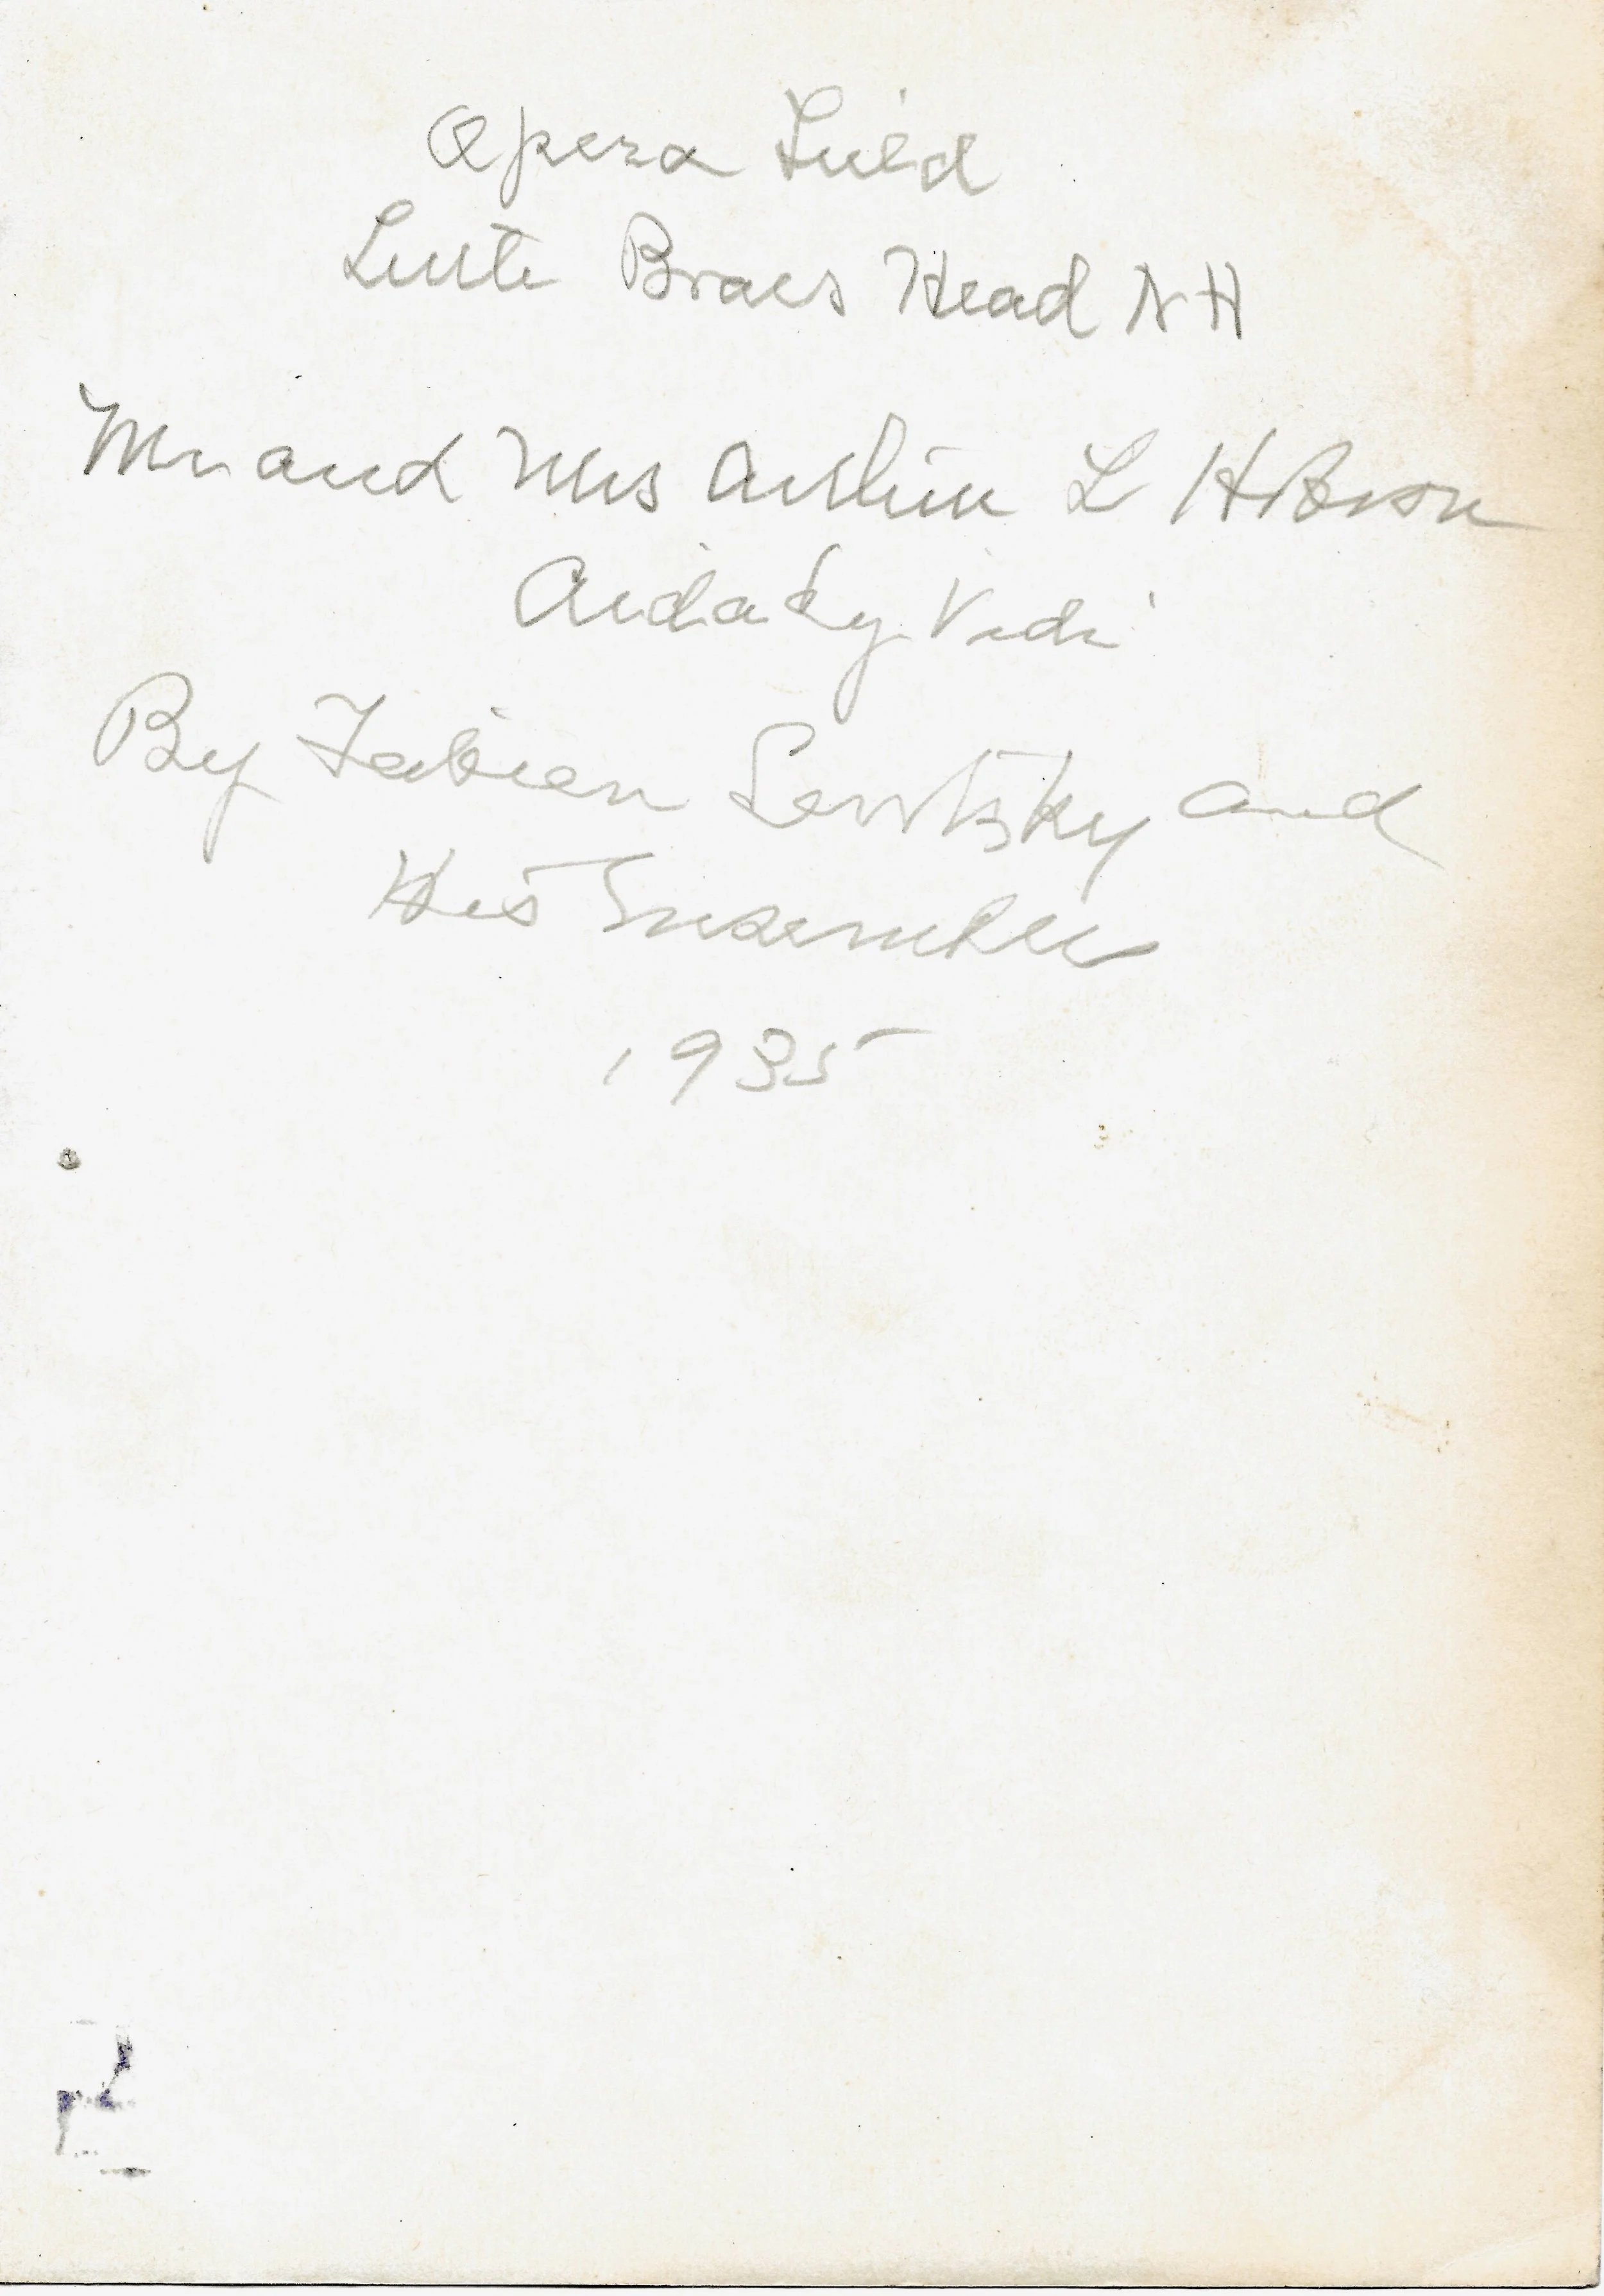 Opera
Braes Head N H
Mr and Mrs Arthur L Hobson
Aida by Verdi
By Fabien Sevitsky and
His Ensemble
1935